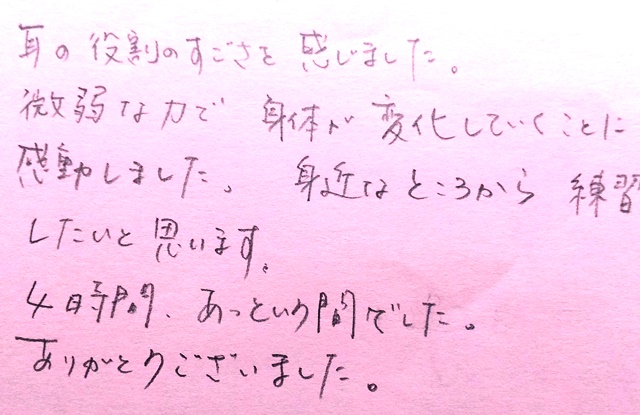 耳の役割のすごさを感じました。
微弱な力で 身体が変化していくことに
感動しました。 身近なところから 練習
したいと思います。
4時間、あっという間でした。
ありがとうございました。